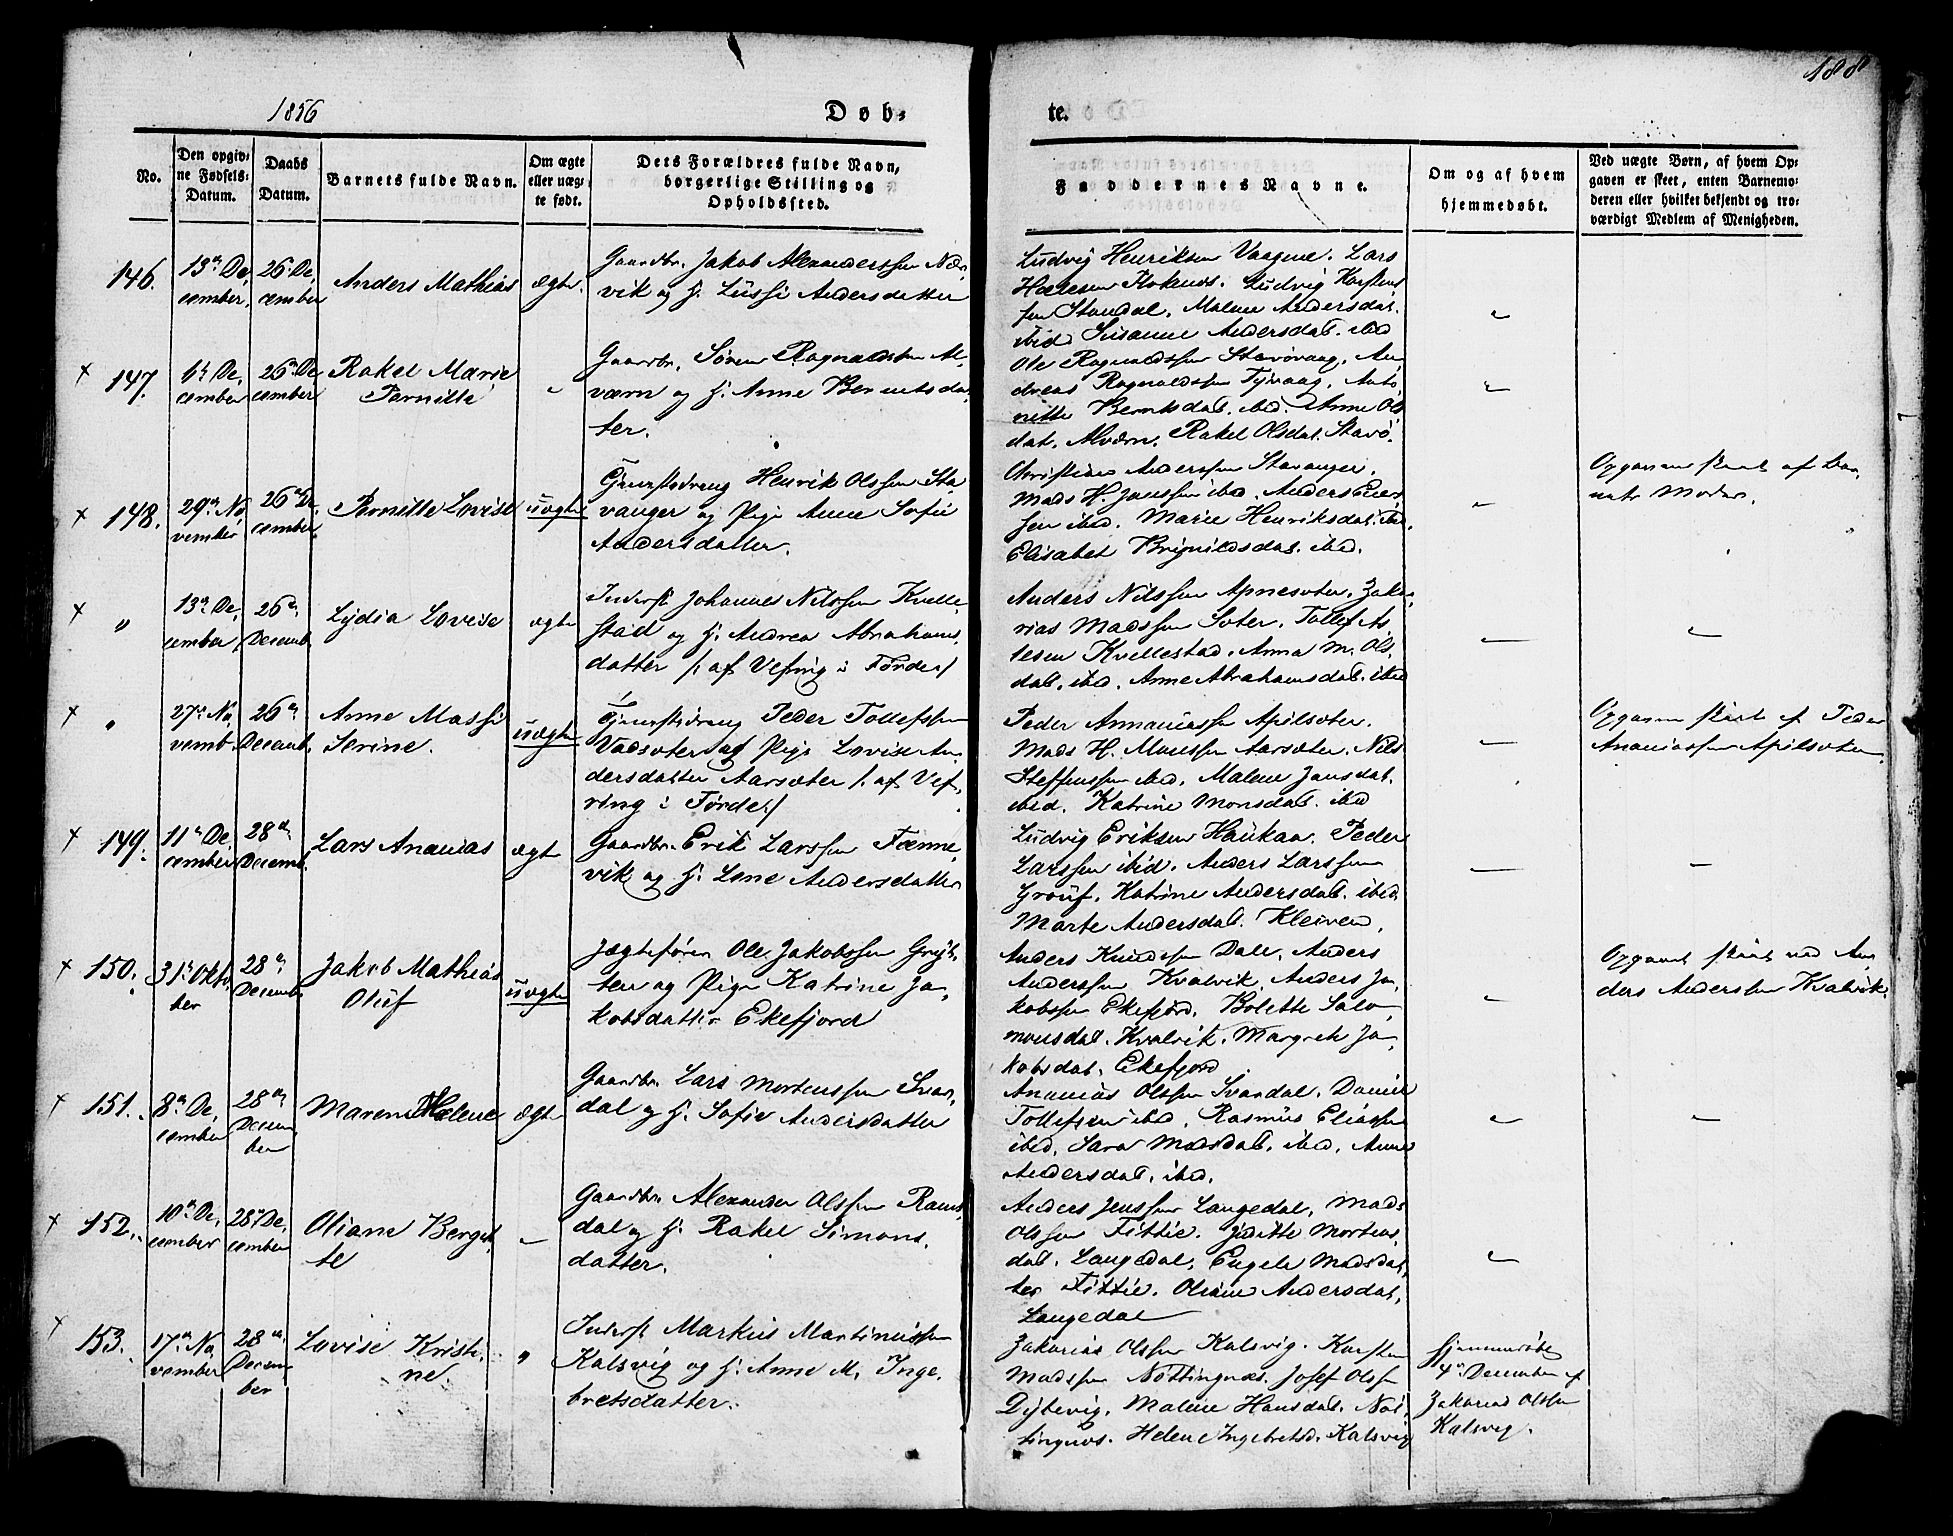 188
1856
Døb-
te.
No.
Den opgiv-
ne Fødsels-
Datum.
Daabs
Datum.
Barnets fulde Navn.
Om ægte
eller uæg-
te født.
Dets Forældres fulde Navn,
borgerlige Stilling og
Opholdssted.
Faddernes Navne.
Om og af hvem
hjemmedøbt.
Ved uægte Børn, af hvem Op-
gaven er skeet, enten Barnemo-
deren eller hvilket bekjendt og tro-
værdigt Medlem af Menigheden.
146.
13de De-
cember.
26 De-
cember
Anders Mathias
ægte.
Gaardbr. Jakob Alexanderssen Nær-
vik og H. Lussi Andersdatter
Ludvig Henriksen Vaagene. Lars
Stoknæs. Ludvig Karsten-
sen Standal. Malene Andersdat.
ibid Susanne Andersdat. ibid
147.
6te De-
cember
26de De-
cember
Rakel Marie
Pernille
Gaardbr. Søren Ragnaldssen Al-
værn og H. Anne Berentsdat-
ter.
Ole Ragnaldssen Stavøvaag. An-
dreas Ragnaldssen Anto-
nette Berntsdat. ibid. Anne Ols-
dat. Alværn. Rakel Olsdat. Stavø.
148.
29de No-
vember
26de De-
cember.
Pernille Lovise
uægte
Tjenestedreng Henrik Olssen Sta-
vanger og Pige Anne Sofie
Andersdatter.
Christian Anderssen Stavanger.
Mads H. Janssen ibid. Anders
sen ibid. Marie Henriksdat. ibd.
Elisabet Brynildsdat. ibid.
Opgaven skeet af Bar-
nets Moder.
"
13de De-
cember
26de
Decemb.
Lydia Lovise
ægte
Inderst Johannes Nilssen Kvelle-
stad og H. Andrea Abrahams-
datter /: af Vefring i Førde:/
Anders Nilssen Apnesæter. Zaka-
rias Madssen Sæter. Tollef As-
lesen Kvellestad. Anna M. Ols-
dat. ibid. Anne Abrahamsdat. ibid
"
27de No-
vemb.
26de
Decemb.
Anne Massi
Serine.
uægte
Tjenestedreng Peder Tollefssen
Vadsæter og Pige Lovise An-
dersdatter Aarsæter /: af Vef-
ring i Førde:/
Peder Annaniassen Apilsæter.
Mads H. Monssen Aarsæter. Nils
Steffenssen ibid. Malene Jansdat.
ibid. Katrine Monsdat. ibid
Opgaven skeet af Peder
Ananiassen Apilsæter
149.
11te De-
cember
28de
Decemb.
Lars Ananias
ægte
Gaardbr. Erik Larssen Fænne-
vik og H. Lene Andersdatter
Ludvig Eriksen Haukaa. Peder
Larssen ibid. Anders Larssen
Grouf. Katrine Andersdat. ibid.
Marte Andersdat. Kleiven.
150.
31te Okto-
ber
28de
Decemb.
Jakob Mathias
Oluf
uægte
Jægtefører Ole Jakobssen Gryt-
ten og Pige Katrine Ja-
kobsdatter Ekefjord
Anders Knudssen Dale. Anders
Anderssen Kvalvik. Anders Ja-
kobssen Ekefjord. Bolette Salo-
monsdat. Kvalvik. Margrete Ja-
kobsdat. Ekefjord
Opgavet skeet ved An-
ders Anderssen Kvalvik.
151.
8de De-
cember
28de
Decem-
ber
Maren Helene
ægte
Gaardbr. Lars Mortenssen Svar-
dal og H. Sofie Andersdatter
Ananias Olssen Svardal. Daniel
Tollefsen ibid. Rasmus Eliassen
ibid. Sara Madsdat. ibid. Anne
Andersdat. ibid.
152.
10de De-
cember
28de De-
cember
Oliane Berget-
te
Gaardbr. Alexander Olssen Rams-
dal og H. Rakel Simons-
datter.
Anders Jenssen Langedal. Mads
Olssen Fittie. Jiditte Mortens-
dat. Langedal. Engele Madsdat-
ter Fittie. Oliane Andersdat.
Langedal
153.
17de No-
vember
28de
Decem-
ber
Lovise Kristi-
ne.
"
Inderst Markus Martinussen
Kalsvig og H. Anne M. Inge-
bretsdatter.
Zakarias Olssen Kalsvig. Karsten
Madssen Nøttingnæs. Josef Olssen
Dybevig. Malene Hansdat. Nøt-
tingnæs. Helene Ingebretsd. Kalsvig
Hjemmedøbt
4de December af
Zakarias Olssen
Kalsvig.